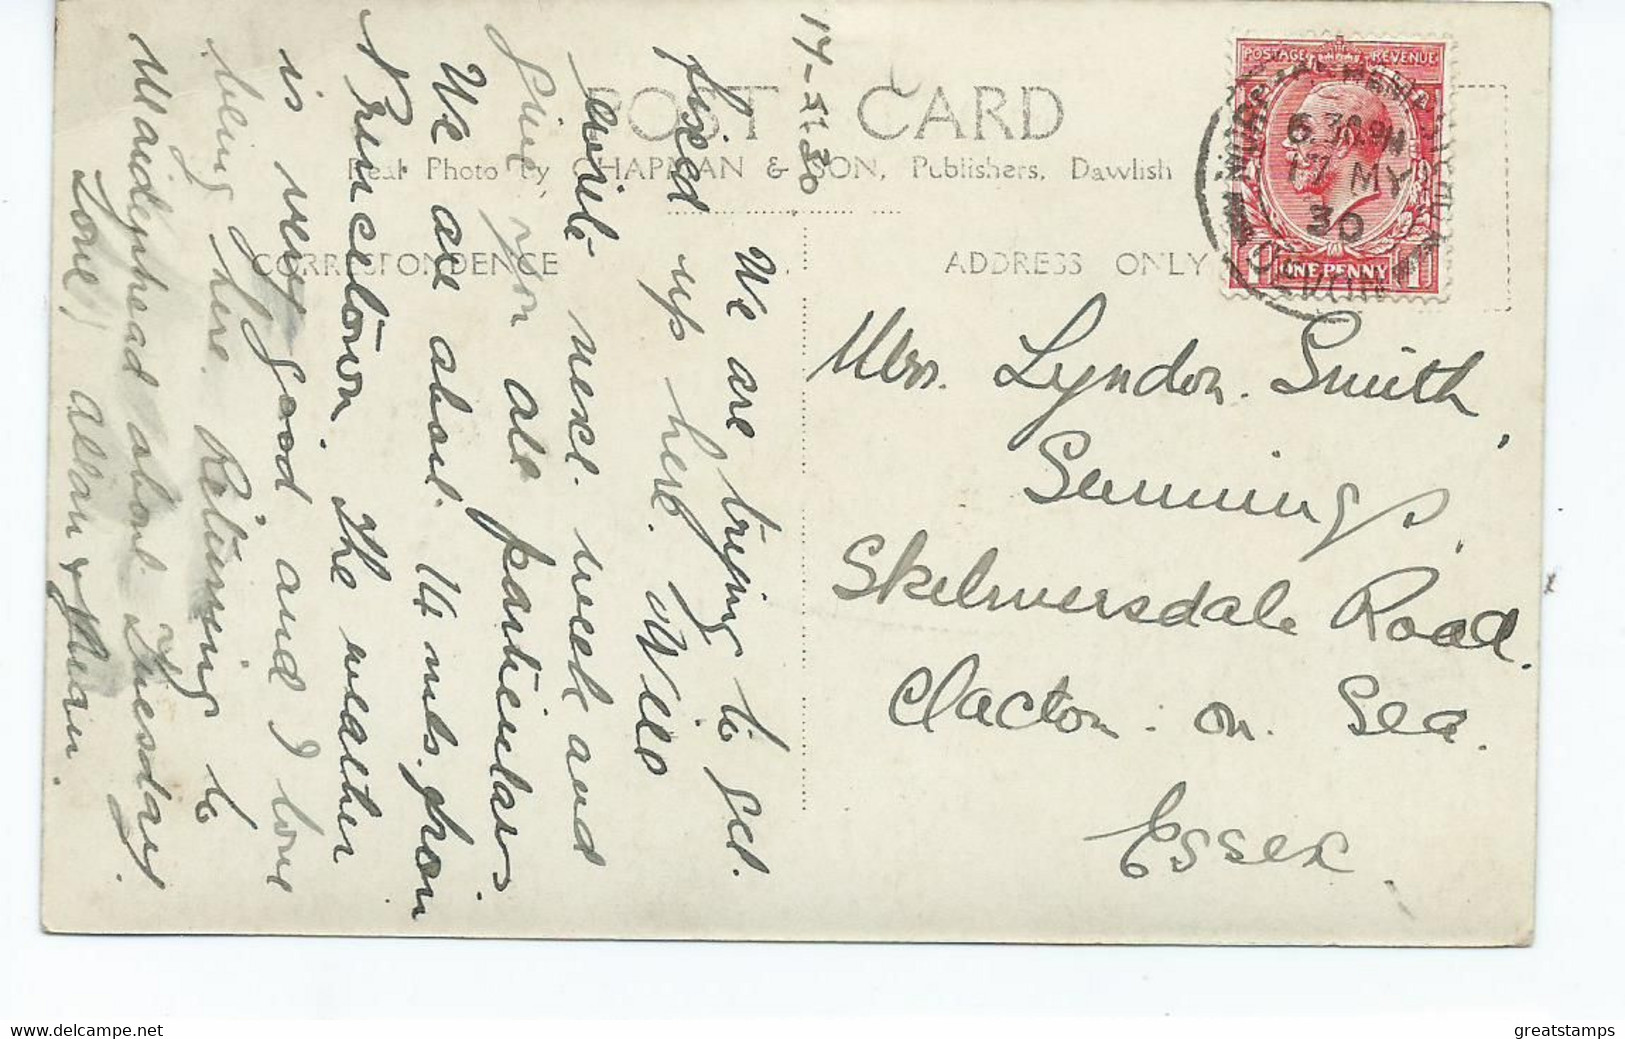 POST CARD
Real Photo by CHAPMAN & SON, Publishers, Dawlish
CORRESPONDENCE
ADDRESS ONLY
POSTAGE REVENUE
6.30 PM
17 MY
30
DEVON
1 ONE PENNY 1
17-5-30
We are trying to get
fixed up here. Will
write next week and
give you all particulars.
We are about 14 mls. from
Princetown. The weather
is very good and I love
being here. Returning to
Maidenhead about Tuesday.
Love, Allan &
Mrs. Lyndon. Smith,
Sunnings,
Skelmersdale Road.
Clacton. on. Sea.
Essex.
greatstamps
www.delcampe.net